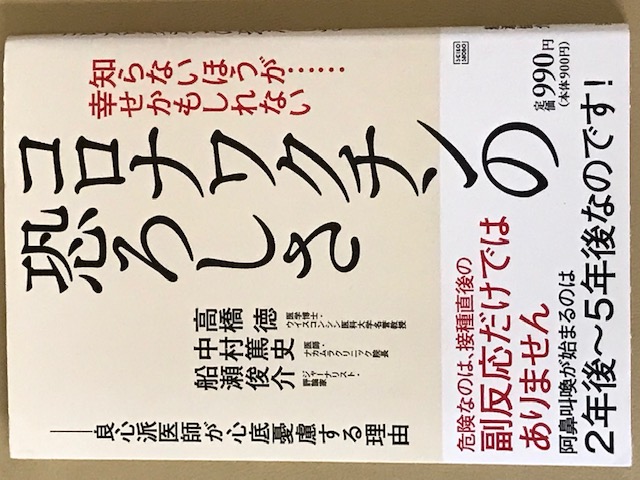 知らないほうが……
幸せかもしれない
コロナワクチンの
恐ろしさ
高橋 徳
医学博士・
ウイスコンシン医科大学名誉教授
中村篤史
医師・
ナカムラクリニック院長
船瀬俊介
ジャーナリスト・
評論家
──良心派医師が心底憂慮する理由
SEISEI
SHOBO
定価990円
(本体900円)
危険なのは、接種直後の
副反応だけでは
ありません
阿鼻叫喚が始まるのは
2年後〜5年後なのです!